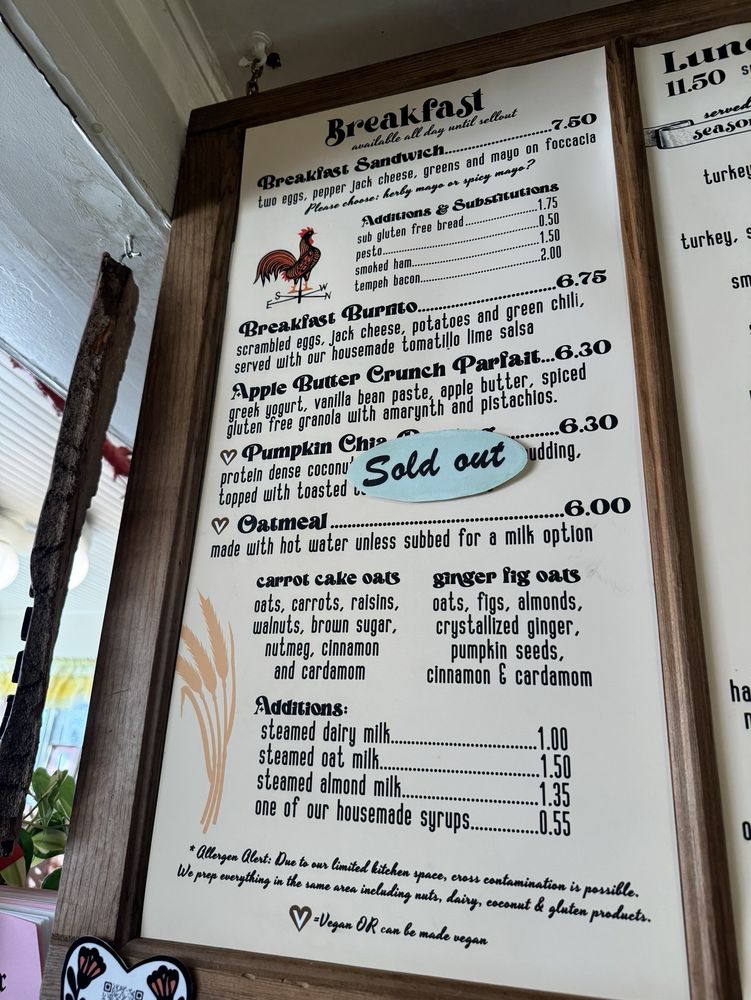 Breakfast
available all day until sellout
Breakfast Sandwich..................7.50
two eggs, pepper jack cheese, greens and mayo on foccacia
Please choose: herby mayo or spicy mayo?
Additions & Substitutions
sub gluten free bread..................1.75
pesto..................0.50
smoked ham..................1.50
tempeh bacon..................2.00
E S W N
Breakfast Burrito..................6.75
scrambled eggs, jack cheese, potatoes and green chili,
served with our housemade tomatillo lime salsa
Apple Butter Crunch Parfait...6.30
greek yogurt, vanilla bean paste, apple butter, spiced
gluten free granola with amarynth and pistachios.
Pumpkin Chia ..........6.30
Sold out
protein dense
topped with toasted
Oatmeal..................6.00
made with hot water unless subbed for a milk option
carrot cake oats
oats, carrots, raisins,
walnuts, brown sugar,
nutmeg, cinnamon
and cardamom
ginger fig oats
oats, figs, almonds,
crystallized ginger,
pumpkin seeds,
cinnamon & cardamom
Additions:
steamed dairy milk..................1.00
steamed oat milk..................1.50
steamed almond milk..................1.35
one of our housemade syrups..................0.55
* Allergen Alert: Due to our limited kitchen space, cross contamination is possible.
We prep everything in the same area including nuts, dairy, coconut & gluten products.
=Vegan OR can be made vegan
11.50
served
turkey
turkey,